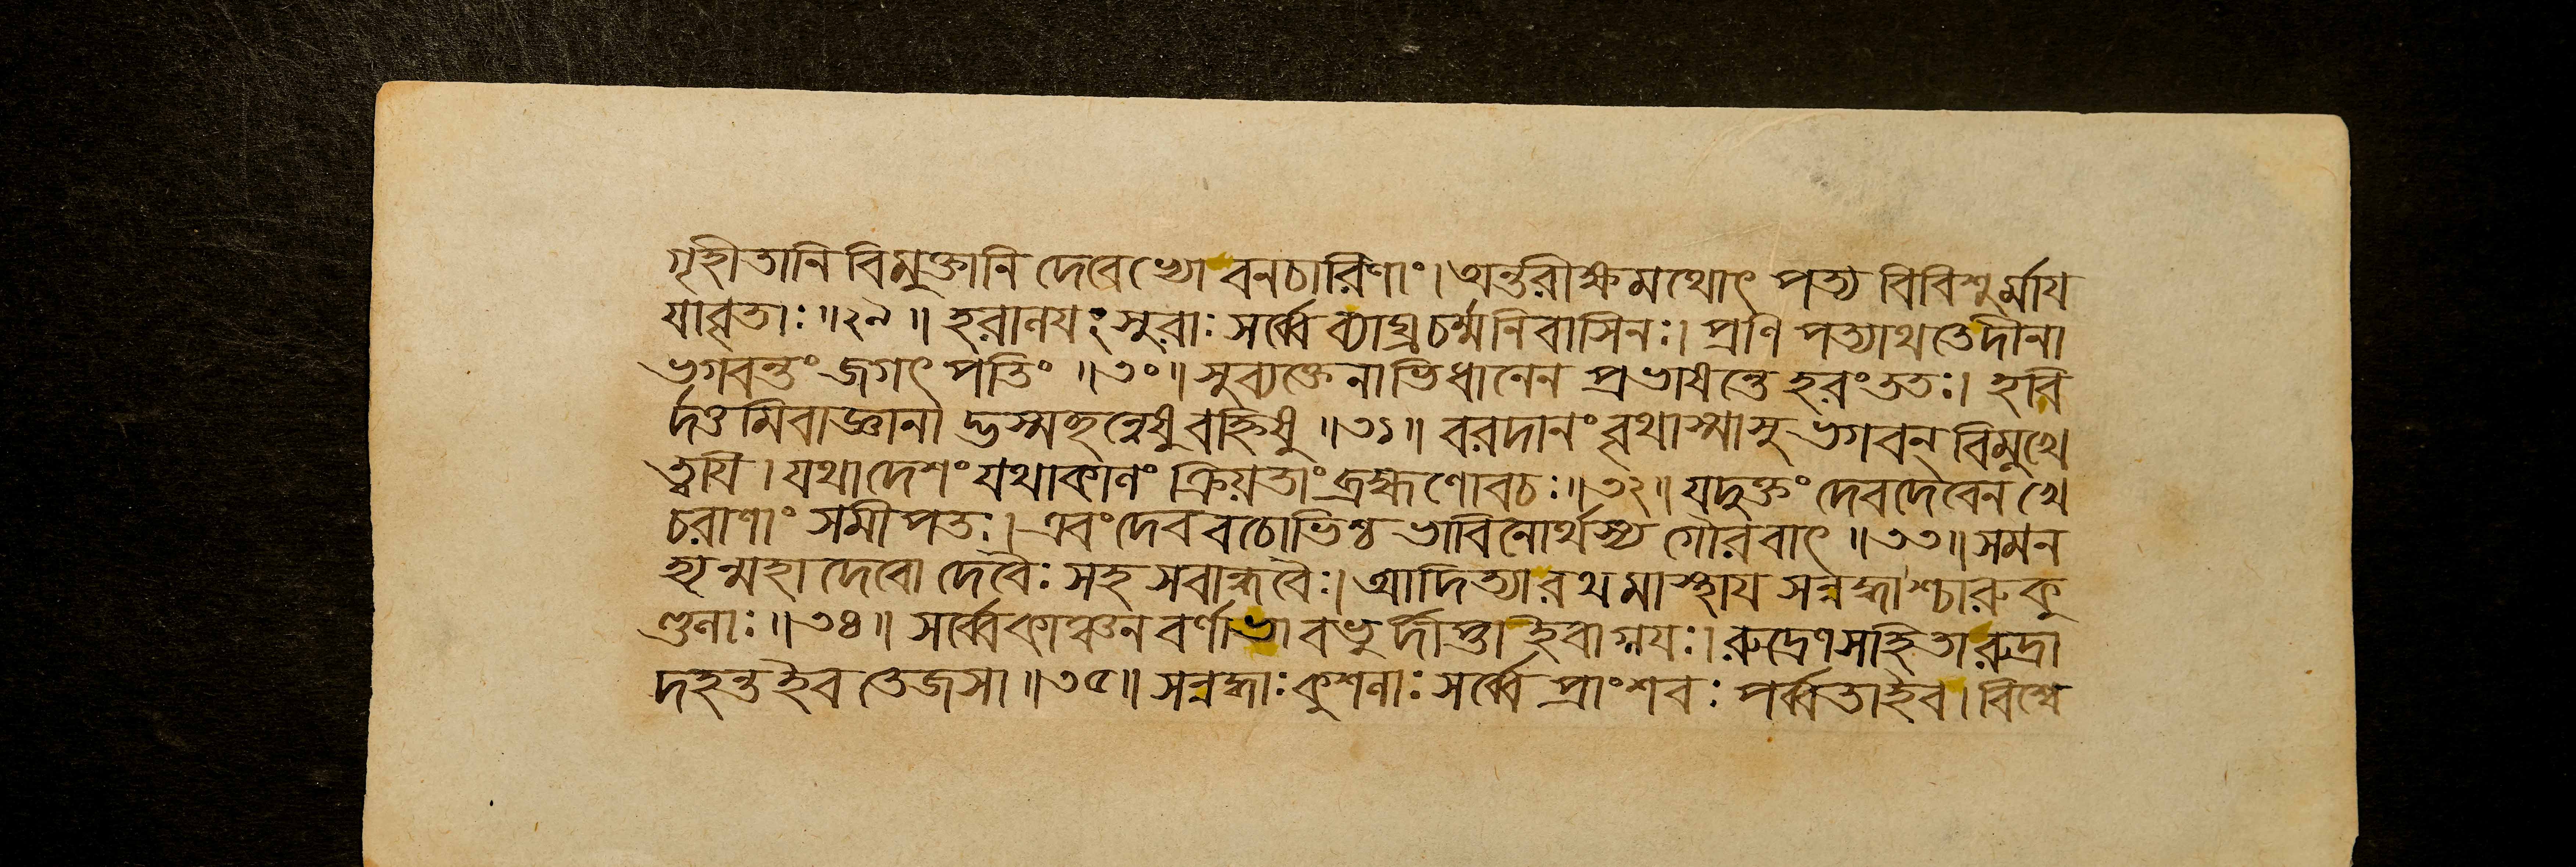 গৃহীতানি বিমুক্তানি দেবেভ্যো বনচারিণাং। অন্তরীক্ষমথোৎ পত্য বিবিশুর্মায
যাবৃতাঃ॥২৯॥ হরালযং সুরাঃ সর্ব্বে ব্যাঘ্রচর্ম্মনিবাসিনঃ। প্রণিপত্যাথ তে দীনা
ভগবন্তং জগৎ পতিং ॥৩০॥ সুব্যক্তেনাভিধানেন প্রভাষন্তে হরং ততঃ। হবি
র্দত্তমিবাজ্ঞানা দ্ভস্মছন্নেষু বহ্নিষু ॥৩১॥ বরদানং বৃথাস্মাসু ভগবন্ বিমুখে
ত্বযি। যথাদেশং যথাকালং ক্রিয়তাং ব্রহ্মণোবচঃ॥৩২॥ যদুক্তং দেবদেবেন খে
চরাণাং সমীপতঃ। এবং দেব বচোভিশ্চ ভাবিনোর্থস্য গৌরবাৎ ॥৩৩॥ সমন
হ্যন্মহা দেবো দেবৈঃ সহ সবান্ধবৈঃ। আদিত্যা রথমাস্থায সন্নদ্ধাশ্চারুকু
ণ্ডলাঃ॥৩৪॥ সর্ব্বে কাঞ্চন বর্ণাভা বভুর্দীপ্তা ইবাগ্নযঃ। রুদ্রেণ সহিতা রুদ্রা
দহন্ত ইব তেজসা॥৩৫॥ সন্নদ্ধাঃ কুশলাঃ সর্ব্বে প্রাংশবঃ পর্ব্বতা ইব। বিশ্বে